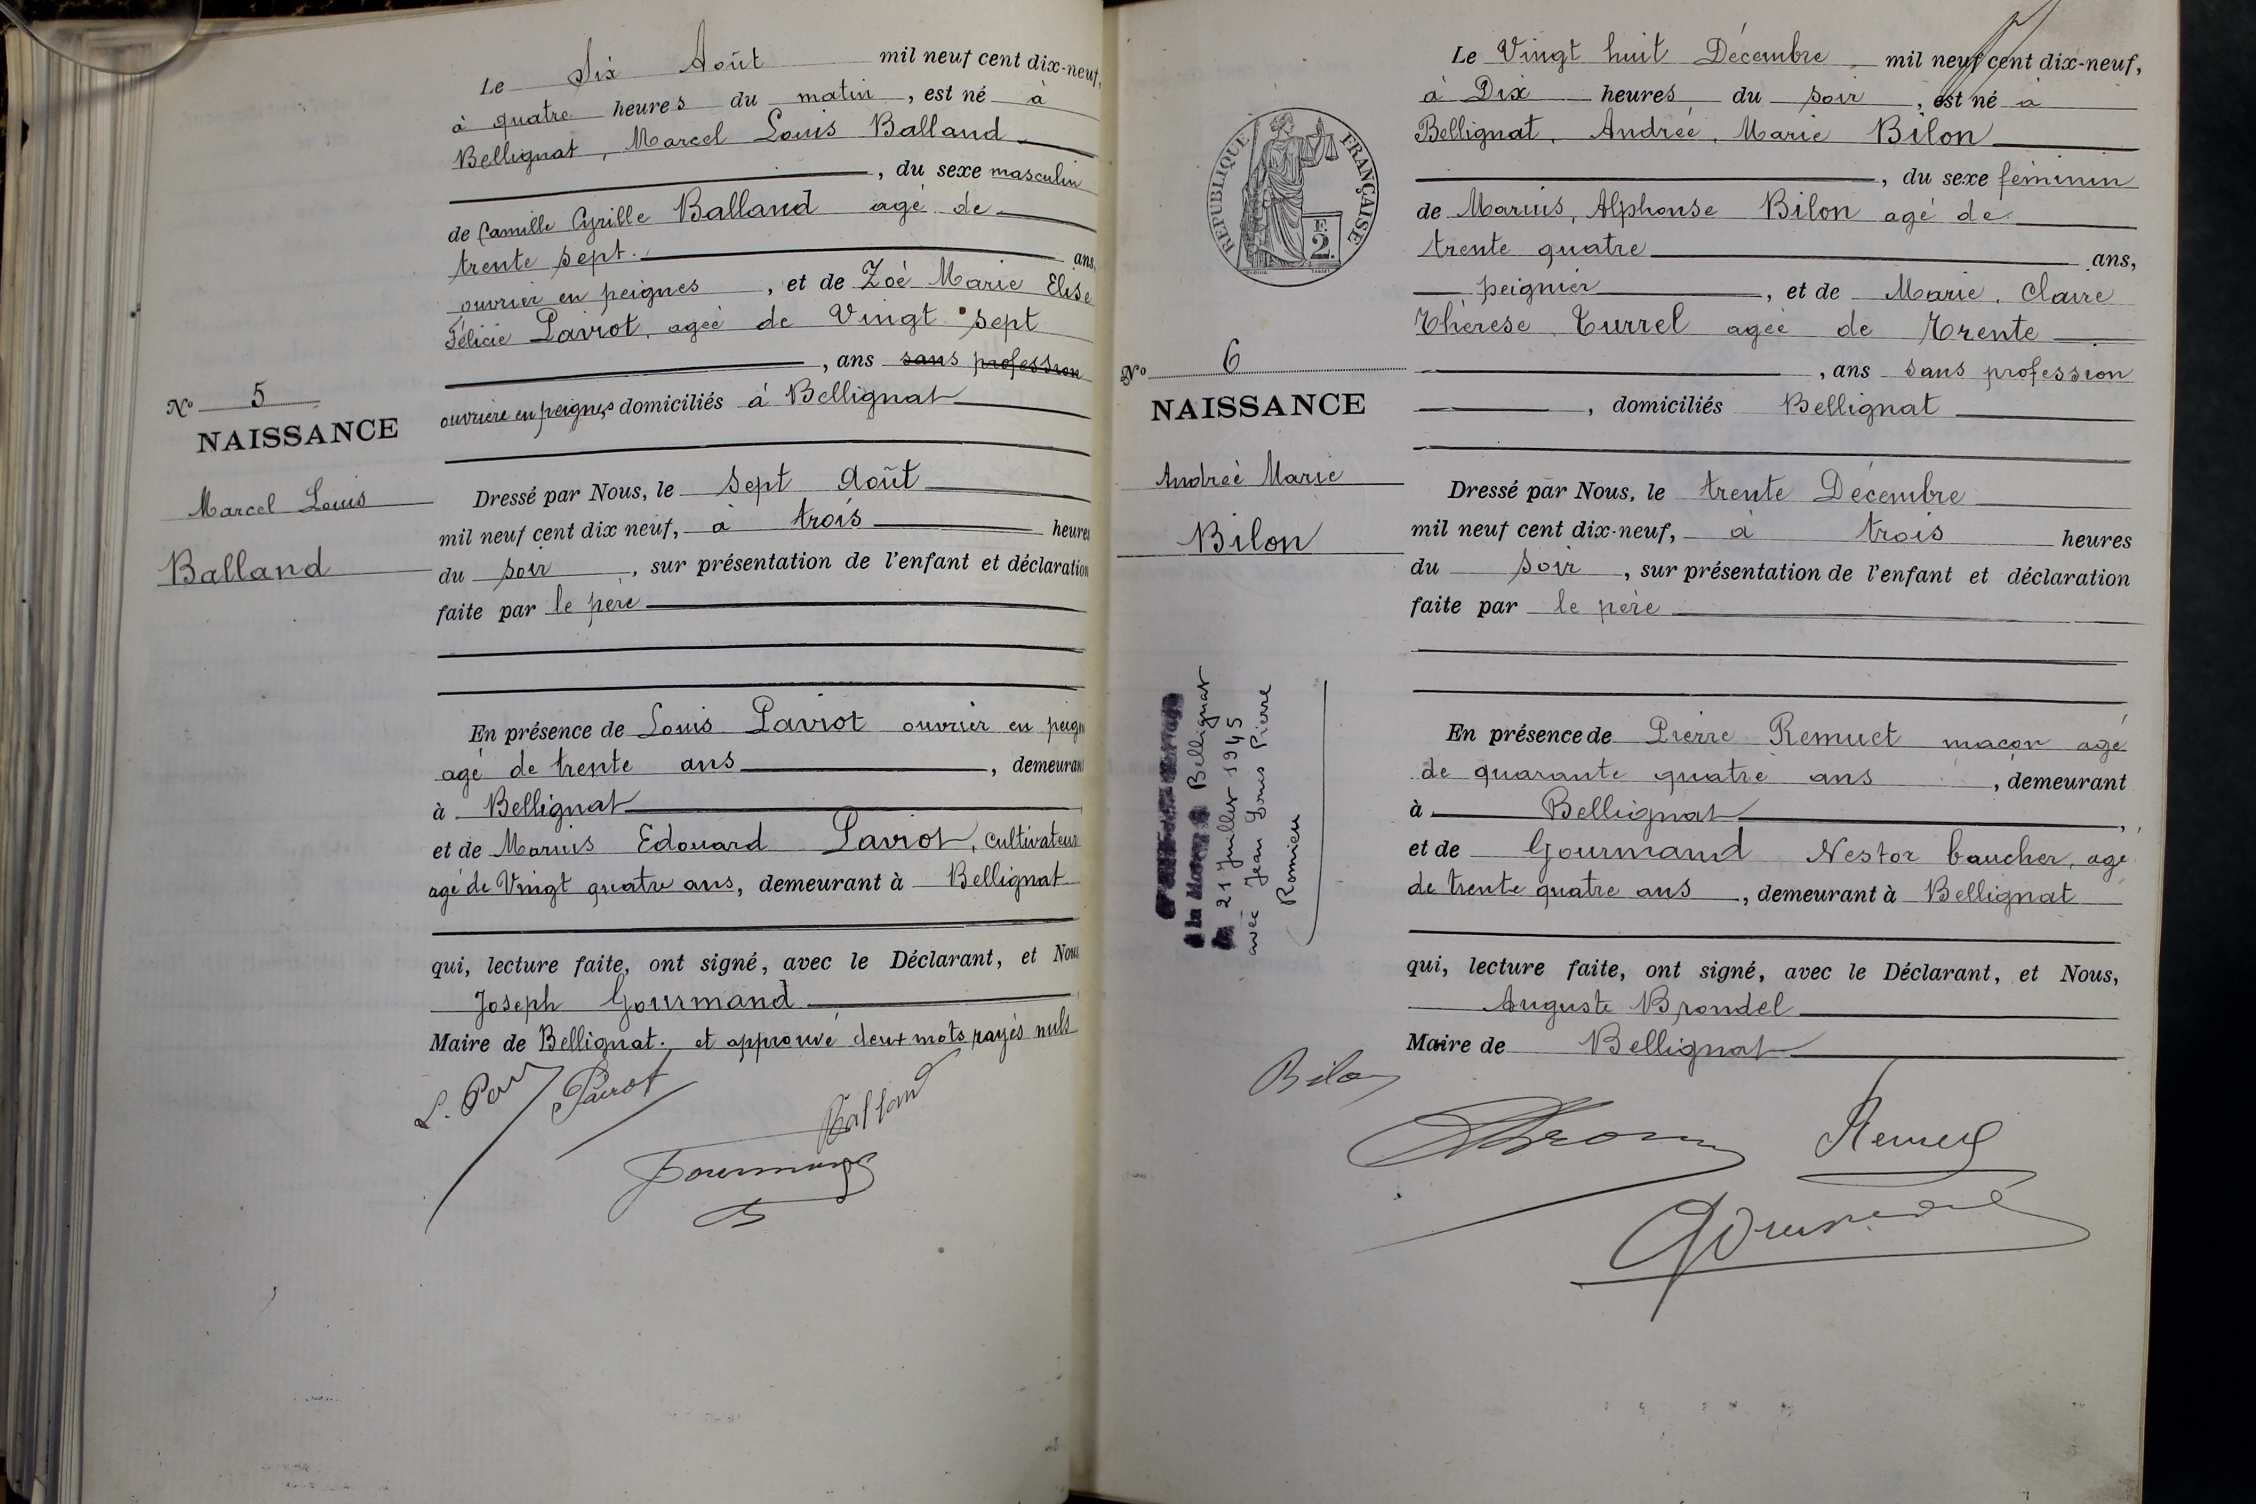 Le Six Août mil neuf cent dix-neuf,
à quatre heures du matin, est né à
Bellignat, Marcel Louis Balland
, du sexe masculin
de Camille Cyrille Balland agé de
trente sept. ans,
ouvrier en peignes, et de Zoé Marie Elise
Félicie Paviot, agée de Vingt sept
, ans sans profession
ouvrière en peignes domiciliés à Bellignat
No 5
NAISSANCE
Marcel Louis
Balland
Dressé par Nous, le sept Août
mil neuf cent dix neuf, à trois heures
du soir, sur présentation de l'enfant et déclaration
faite par le père
En présence de Louis Paviot ouvrier en peign
agé de trente ans, demeurant
à Bellignat
et de Marius Edouard Paviot, cultivateur
agé de Vingt quatre ans, demeurant à Bellignat
qui, lecture faite, ont signé, avec le Déclarant, et Nous
Joseph Gourmand
Maire de Bellignat. et approuvé deux mots rayés nuls
L. Pav Paviot
Balland
Gourmand
Le Vingt huit Décembre mil neuf cent dix-neuf,
à Dix heures du soir, est né à
Bellignat, Andrée, Marie Bilon
, du sexe féminin
de Marius, Alphonse Bilon agé de
trente quatre ans,
peignier, et de Marie, Claire
Thérèse Turrel agée de Trente
, ans sans profession
, domiciliés Bellignat
REPUBLIQUE FRANÇAISE
F.
2.
No 6
NAISSANCE
Andrée Marie
Bilon
Dressé par Nous, le trente Décembre
mil neuf cent dix-neuf, à trois heures
du soir, sur présentation de l'enfant et déclaration
faite par le père
à la Bellignat
21 Juillet 1945
avec Jean Louis Pierre
Romieu
En présence de Pierre Remuet maçon agé
de quarante quatre ans, demeurant
à Bellignat,
et de Gourmand Nestor boucher, agé
de trente quatre ans, demeurant à Bellignat
qui, lecture faite, ont signé, avec le Déclarant, et Nous,
Auguste Brondel
Maire de Bellignat
Bilon
Remuet
Gourmand